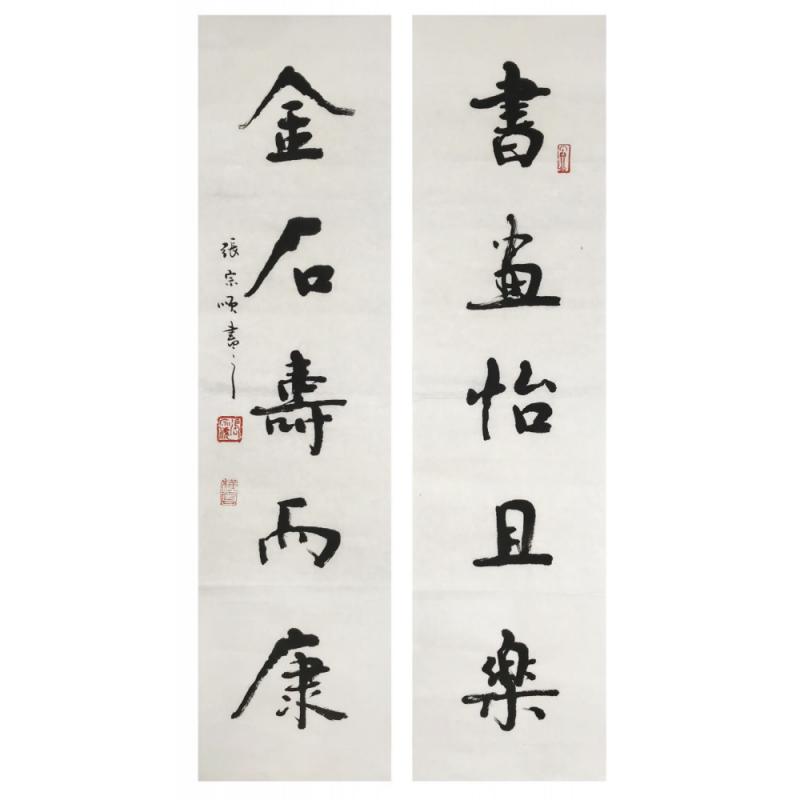 書畫怡且樂
金石壽而康
張宗順書之